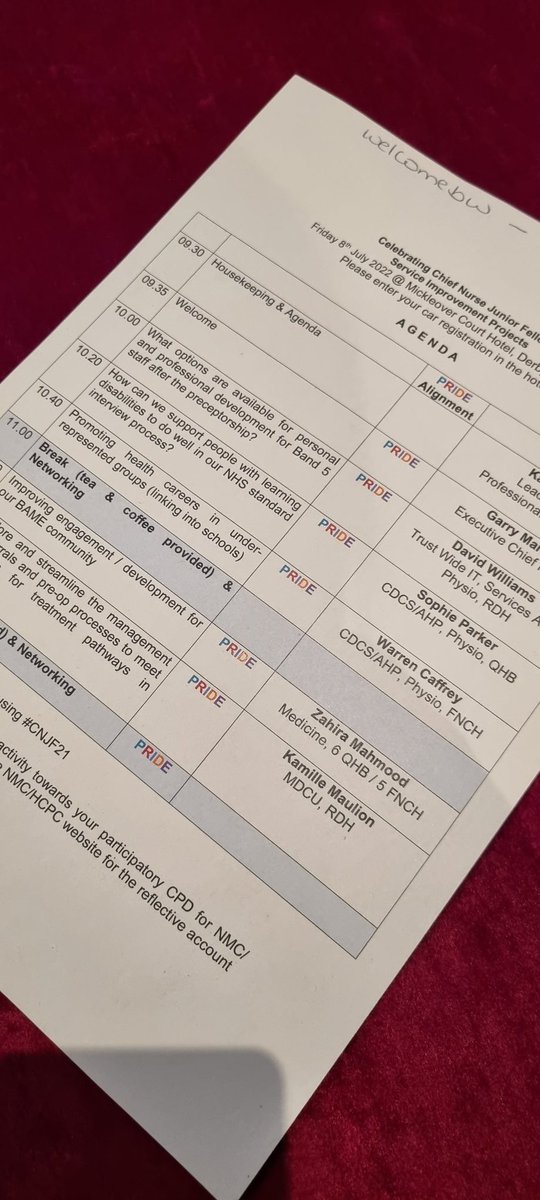 welcome.bw –
Celebrating Chief Nurse Junior
Service Improvement Projects
Friday 8th July 2022 @ Mickleover Court Hotel,
Please enter your car registration in the
AGENDA
PRIDE
Alignment
09.30
Housekeeping & Agenda
PRIDE
Professional
09.35
Welcome
PRIDE
Garry
Executive Chief
10.00
What options are available for personal
and professional development for Band 5
staff after the preceptorship?
PRIDE
David Williams
Trust Wide IT, Services
Physio, RDH
10.20
How can we support people with learning
disabilities to do well in our NHS standard
interview process?
PRIDE
Sophie Parker
CDCS/AHP, Physio, QHB
10.40
Promoting health careers in under-
represented groups (linking into schools)
Warren Caffrey
CDCS/AHP, Physio, FNCH
11.00
Break (tea & coffee provided) &
Networking
Improving engagement / development for
our BAME community
PRIDE
Zahira Mahmood
Medicine, 6 QHB / 5 FNCH
and streamline the management
and pre-op processes to meet
for treatment pathways in
PRIDE
Kamille Maulion
MDCU, RDH
& Networking
PRIDE
using #CNJF21
activity towards your participatory CPD for NMC/
NMC/HCPC website for the reflective account